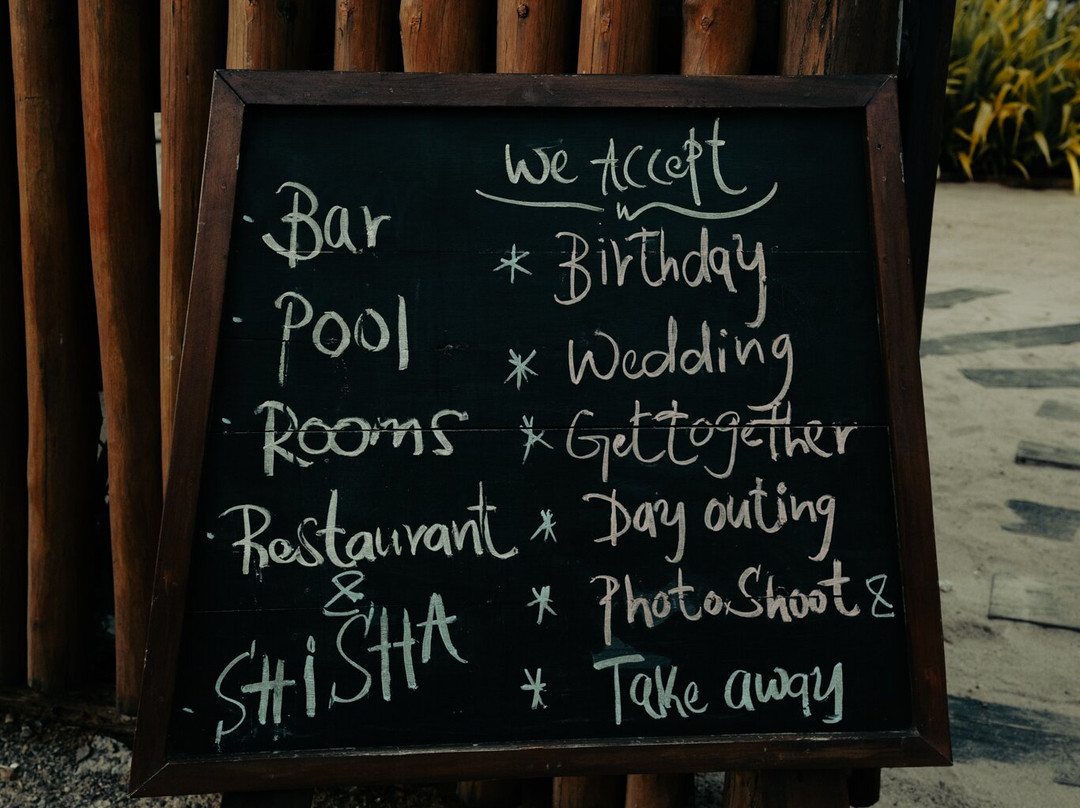 Bar
Pool
Rooms
Restaurant
&
SHiSHA
We Accept
* Birthday
* Wedding
* Get together
* Day outing
* Photo.Shoot &
* Take away